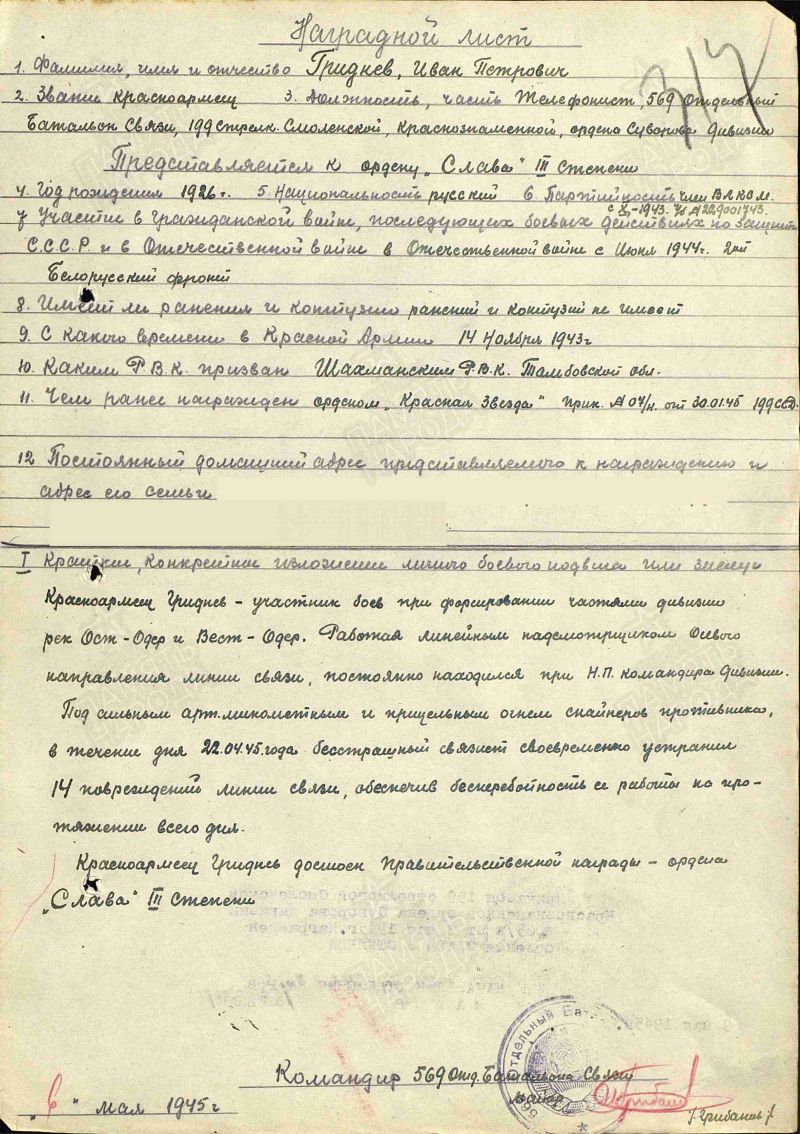 Наградной лист
317
1. Фамилия, имя и отчество Гриднев, Иван Петрович
2. Звание красноармеец 3. Должность, часть Телефонист, 569 Отдельный
Батальон Связи, 199 Стрелк. Смоленской, Краснознаменной, ордена Суворова дивизии
Представляется к ордену "Слава" III Степени
4. Год рождения 1926 г. 5. Национальность русский 6. Партийность член ВЛКСМ.
с X-1943.
7 Участие в гражданской войне, последующих боевых действиях по защите
С.С.С.Р. и в Отечественной войне в Отечественной войне с Июня 1944 г. 2ой
Белорусский фронт
8. Имеет ли ранения и контузии ранений и контузий не имеет
9. С какого времени в Красной Армии 14 Ноября 1943 г
10. Каким Р.В.К. призван Шахманским Р.В.К. Тамбовской обл.
11. Чем ранее награжден орденом "Красная Звезда" Прик. № 07/н. от 30.01.45 199 СКСД.
12 Постоянный домашний адрес представляемого к награждению и
адрес его семьи
I Краткое, конкретное изложение личного боевого подвига или заслуг
Красноармеец Гриднев - участник боев при форсировании частями дивизии
рек Ост-Одер и Вест-Одер. Работая линейным надсмотрщиком Осевого
направления линии связи, постоянно находился при Н.П. командира дивизии.
Под сильным арт. минометным и прицельным огнем снайперов противника,
в течение дня 22.04.45 года бесстрашный связист своевременно устранил
14 повреждений линии связи, обеспечив бесперебойность ее работы на про-
тяжении всего дня.
Красноармеец Гриднев достоен Правительственной награды - ордена
"Слава" III Степени
Командир 569 Отд. Батальона Связи
майор
"6" мая 1945 г
/Грибанов/